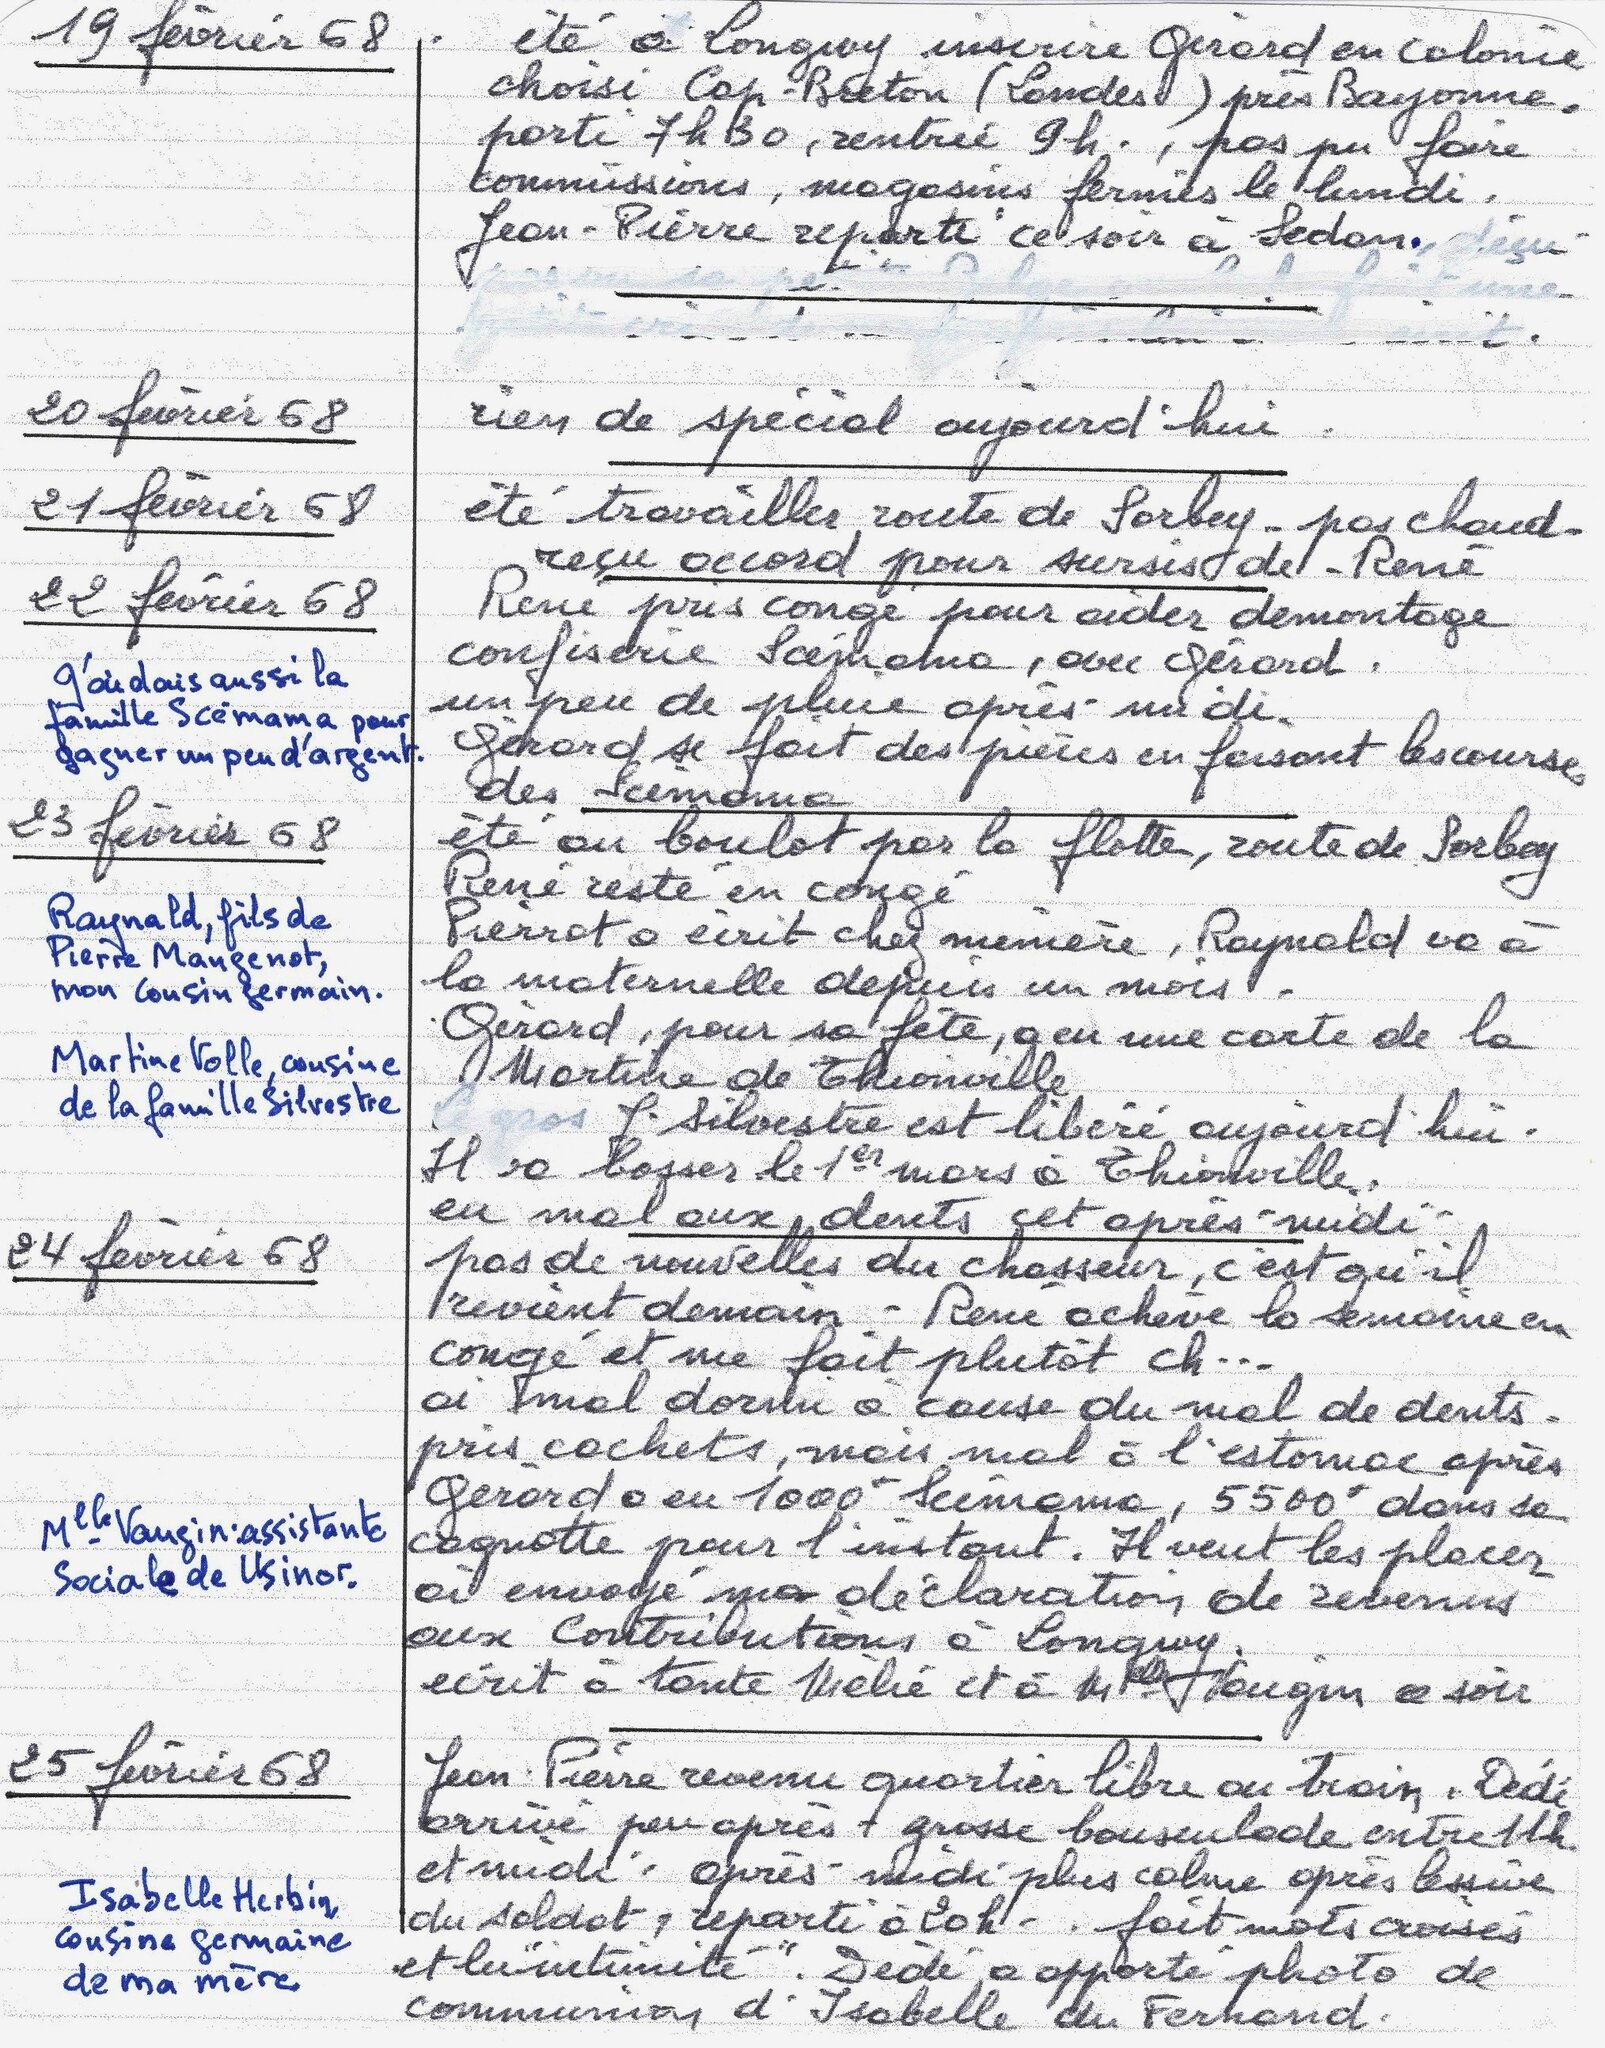 19 février 68
été à Longwy inscrire Gérard en colonie
choisi Cap-Breton (Landes) près Bayonne.
parti 7h30, rentrée 9h., pas pu faire
commissions, magasins fermés le lundi.
Jean-Pierre reparti ce soir à Sedan., déçu
20 février 68
rien de spécial aujourd'hui.
21 février 68
été travailler route de Sorbey - pas chaud -
reçu accord pour sursis de - René
22 février 68
René pris congé pour aider démontage
confiserie Scémama, avec Gérard.
un peu de pluie après-midi.
Gérard se fait des pièces en faisant les courses
des Scémama
J'aidais aussi la
famille Scémama pour
gagner un peu d'argent.
23 février 68
été au boulot par la flotte, route de Sorbey
René resté en congé
Pierrot a écrit chez mémère, Raynald va à
la maternelle depuis un mois.
Gérard, pour sa fête, a eu une carte de la
Martine de Thionville
le gros J. Silvestre est libéré aujourd'hui.
Il va bosser le 1er mars à Thionville.
eu mal aux dents cet après-midi
Raynald, fils de
Pierre Mangenot,
mon cousin germain.
Martine Volle, cousine
de la famille Silvestre
24 février 68
pas de nouvelles du chasseur, c'est qu'il
revient demain - René achève la semaine en
congé et me fait plutôt ch...
ai mal dormi à cause du mal de dents.
pris cachets, mais mal à l'estomac après
Gérard a eu 1000 Scémama, 5500 dans sa
cagnotte pour l'instant. Il veut les placer
ai envoyé ma déclaration de revenus
aux Contributions à Longwy.
écrit à tante Mélie et à Mlle Vaugin ce soir
Mlle Vaugin: assistante
Sociale de Usinor.
25 février 68
Jean-Pierre revenu quartier libre au train. Dédé
arrivé peu après + grosse bousculade entre 11h
et midi. après-midi plus calme après lessive
du soldat, reparti à 20h. fait mots croisés
et lu "intimité". Dédé a apporté photo de
communion d'Isabelle du Fernand.
Isabelle Herbin,
cousine germaine
de ma mère